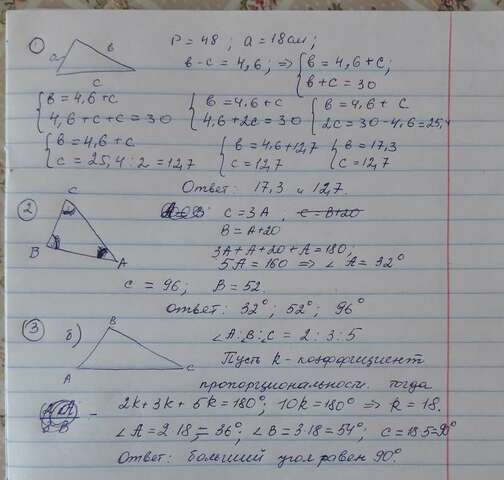 1) P = 48 ; a = 18 см ;
a в c
в - c = 4,6 ; => { в = 4,6 + c ;
в + c = 30
{ в = 4,6 + c { в = 4,6 + c { в = 4,6 + c
4,6 + c + c = 30 4,6 + 2c = 30 2c = 30 - 4,6 = 25,4
{ в = 4,6 + c { в = 4,6 + 12,7 { в = 17,3
c = 25,4 : 2 = 12,7 c = 12,7 c = 12,7
Ответ: 17,3 и 12,7.
2 C B A
C = 3A , C = B+20
B = A+20
3A + A + 20 + A = 180 ;
5A = 160 => ∠A = 32°
C = 96 ; B = 52.
Ответ: 32° ; 52° ; 96°
3 б) A B C
∠A : B : C = 2 : 3 : 5
Пусть k - коэффициент
пропорциональности. тогда
2k + 3k + 5k = 180° ; 10k = 180° => k = 18.
∠A = 2·18 = 36° ; ∠B = 3·18 = 54° ; C = 18·5 = 90°
Ответ: больший угол равен 90°.